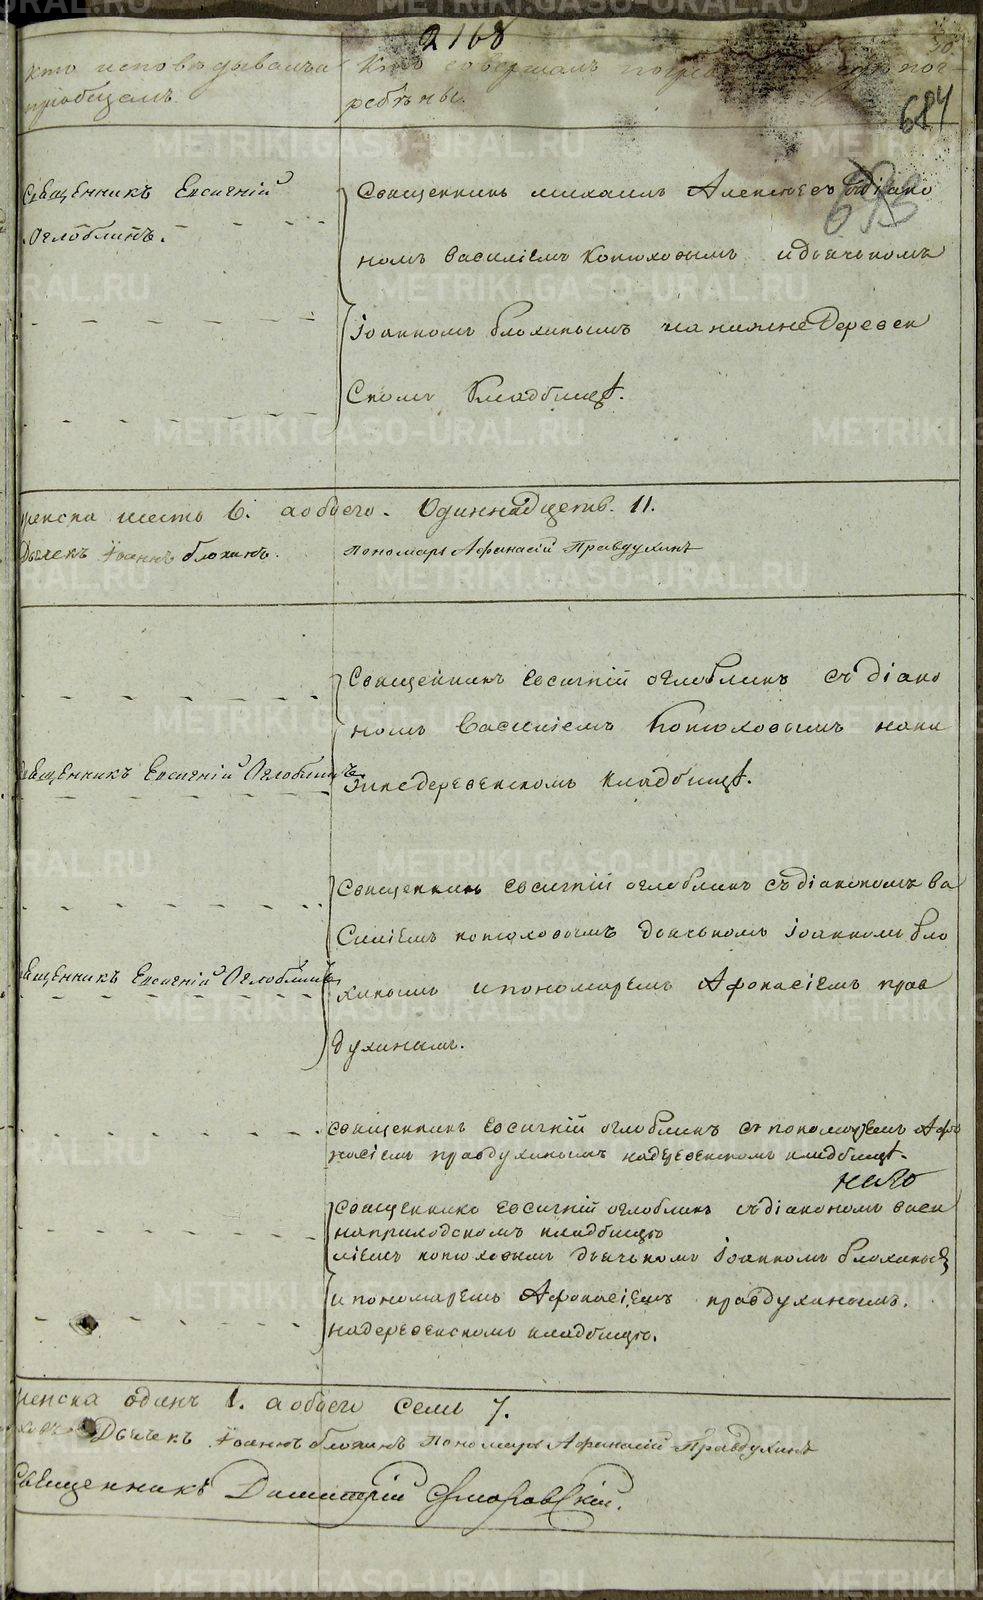 2168
684
693
кто исповѣдывалъ и
пріобщалъ.
Кто совершалъ погребеніе и гдѣ пог-
ребѣны.
Священникъ Евсигній
Оглоблинъ.
Священникъ михаилъ Алексѣевъ съ діако
номъ василіемъ Копюховымъ и дьячькомъ
Іоанномъ блохинымъ на нижнедеревен
скомъ кладбищѣ.
женска шесть 6. а обоего. Одиннадцеть. 11.
Дьячекъ Іоаннъ блохинъ. пономарь Афанасій Правдухинъ
Священникъ Евсигній оглоблинъ съ діако
номъ Василіемъ Копюховымъ на ни
жнедеревенскомъ кладбищѣ.
Священникъ Евсигній Оглоблинъ
Священникъ евсигній оглоблинъ съ діакономъ ва
силіемъ копюховымъ дьячькомъ Іоанномъ бло
хинымъ и пономаремъ Афонасіемъ прав
духинымъ.
Священникъ Евсигній Оглоблинъ
священникъ евсигній оглоблинъ съ пономаремъ Афо
насіемъ правдухинымъ на деревенскомъ кладбищѣ.
священникъ евсигній оглоблинъ съ діакономъ васи
на приходскомъ кладбищѣ
ліемъ копюховымъ дьячькомъ Іоанномъ блохинымъ
и пономаремъ Афонасіемъ правдухинымъ.
на деревенскомъ кладбищѣ.
женска одинъ 1. а обоего семь 7.
Дьячекъ Іоаннъ блохинъ пономарь Афанасій Правдухинъ
Священникъ Димитрій Смородскій.
METRIKI.GASO-URAL.RU